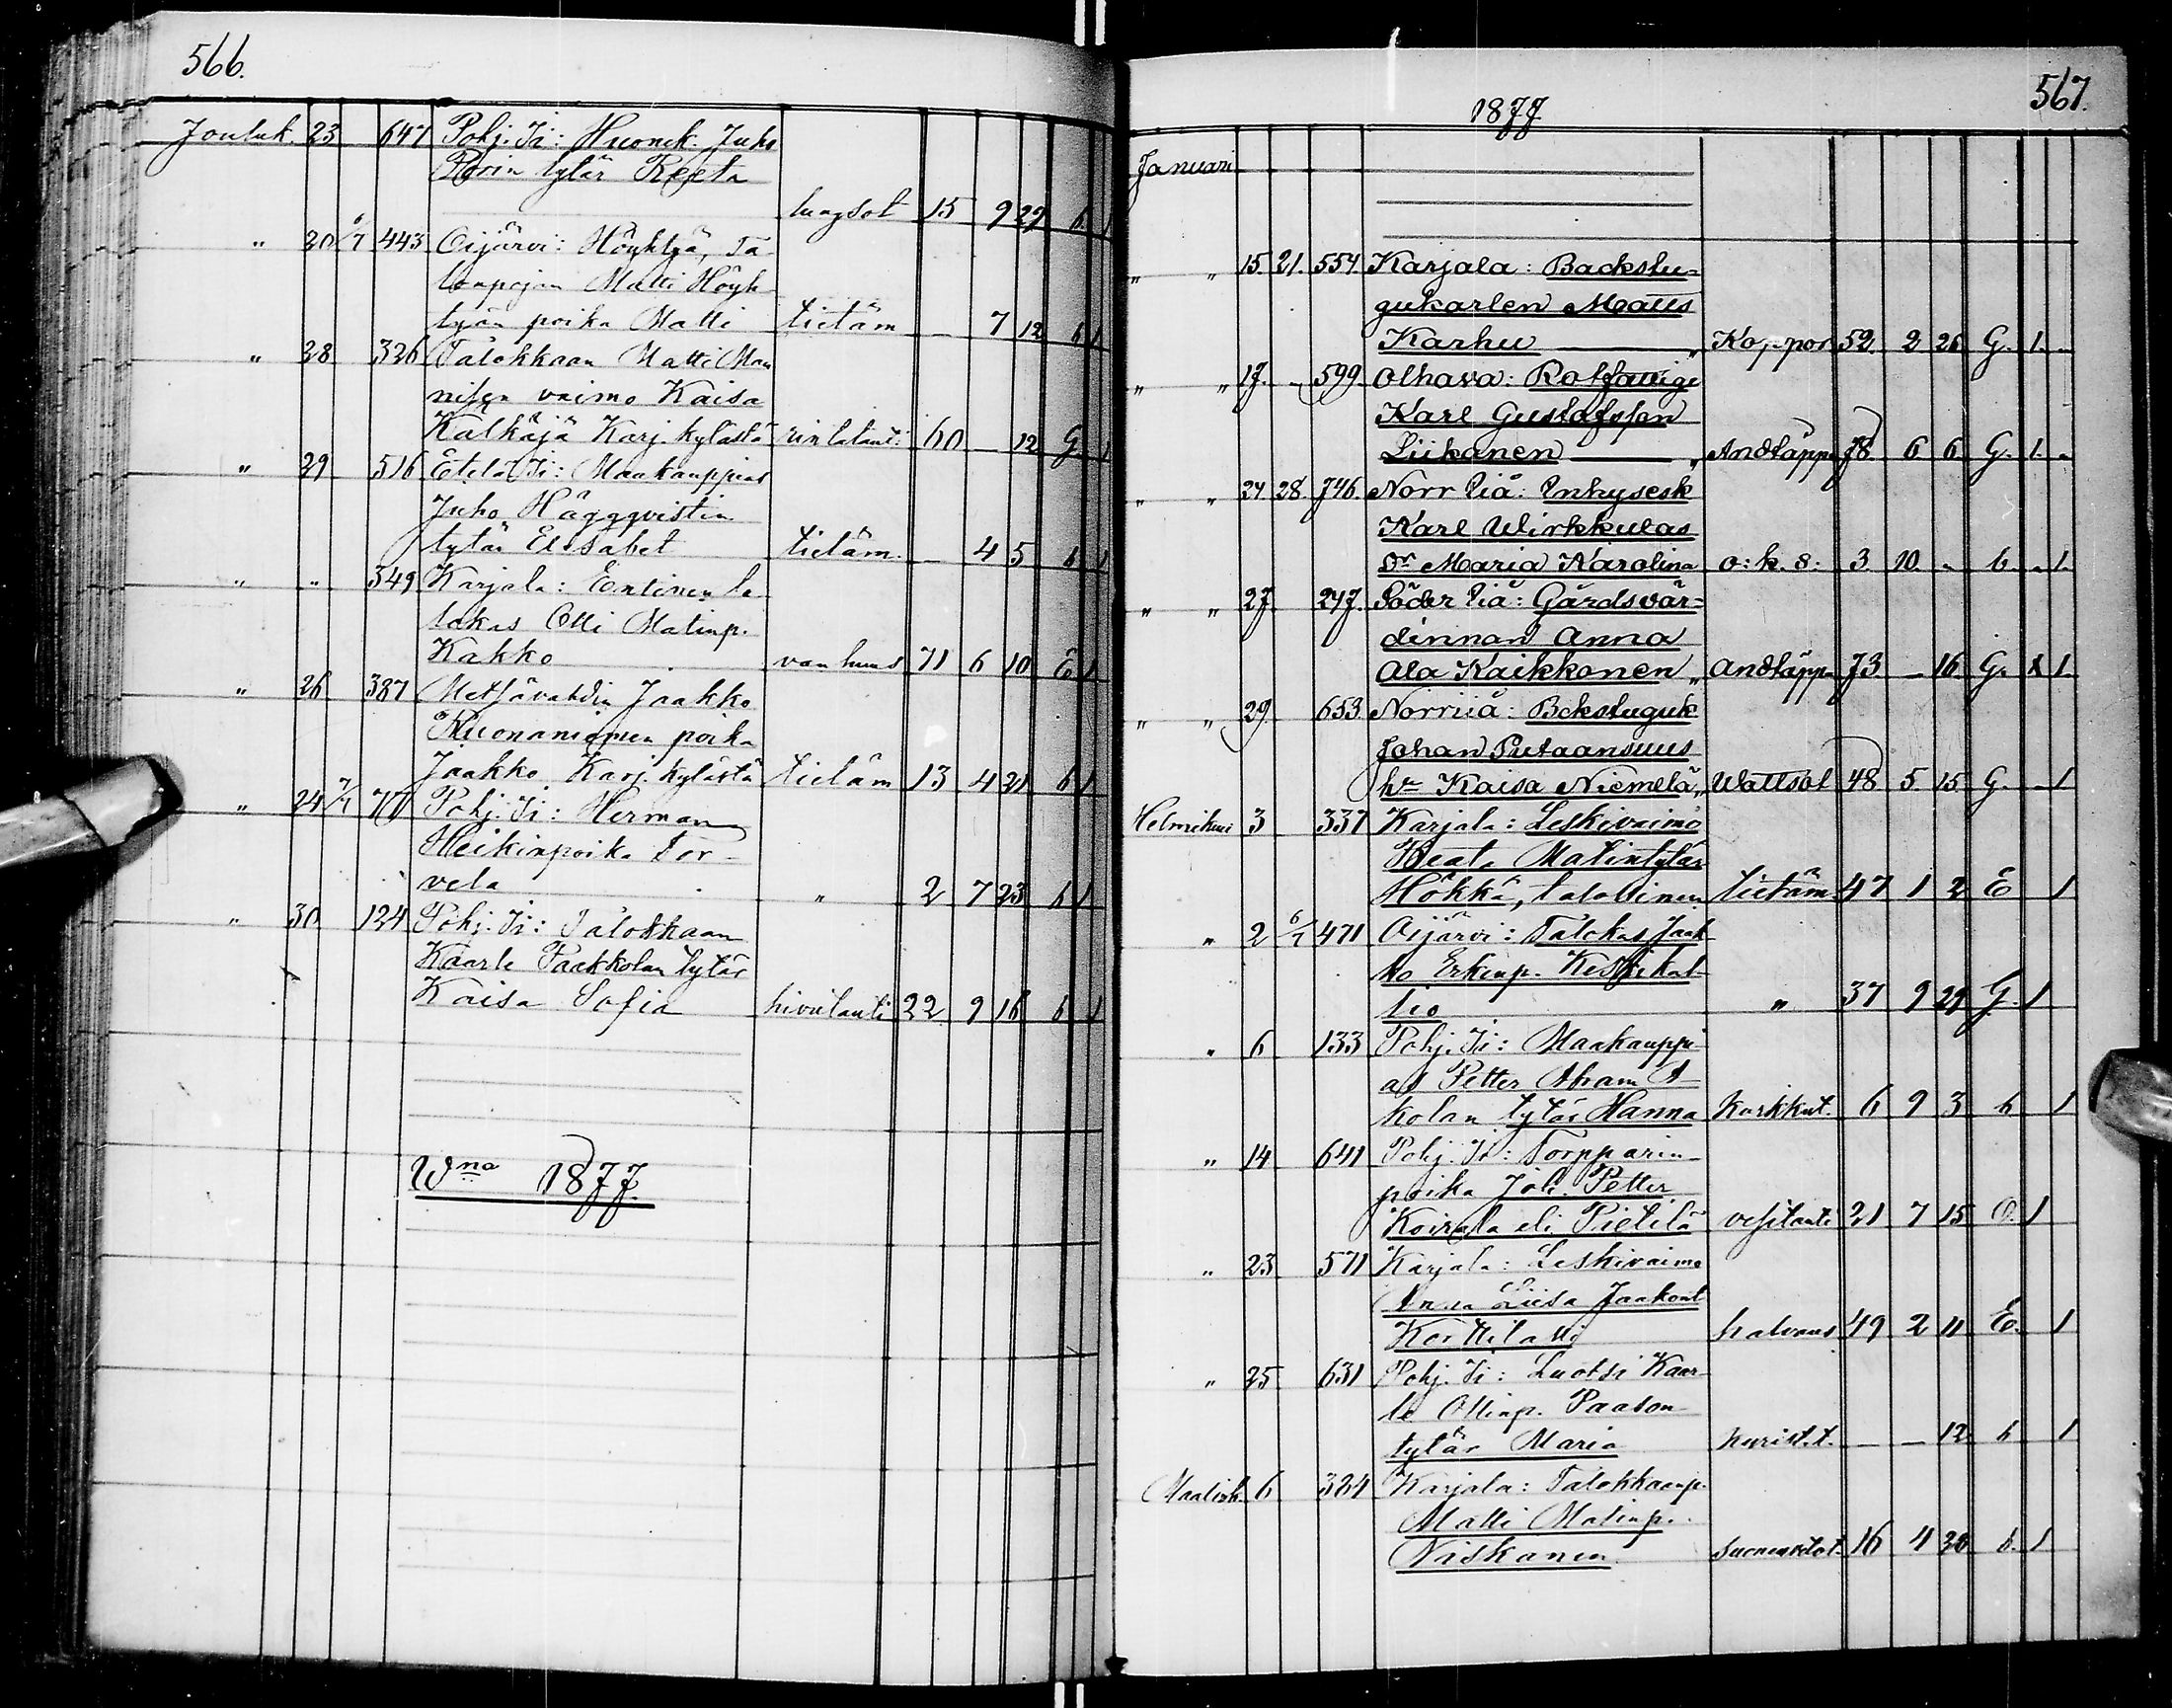 566.
Jouluk. 23 647 Pohj. Ii: Huonek. Juho
Porin tytär Reeta
lungsot 15 9 29 b 1
" 20 6/7 443 Oijärvi: Höyhtyä, Ta-
lonpojan Matti Höyh-
tyän poika Matti tietäm — 7 12 b 1
" 28 326 Talokkaan Matti Man
nisen vaimo Kaisa
Kälkäjä Karj. kylästä rintataut: 60 — 12 G 1
" 29 516 Etelä Ii: Maakauppias
Juho Häggqvistin
tytär Elisabet tietäm. — 4 5 b 1
" " 349 Karjala: Entinen ta
lokas Olli Matinp.
Kakko vanhuus 71 6 10 E 1
" 26 387 Metsävahdin Jaakko
Kuonaniemen poika
Jaakko Karj. kylästä tietäm 13 4 21 b 1
" 24 7/7 Pohj. Ii: Herman
Heikinpoika Tor-
vela " 2 7 23 b 1
" 30 124 Pohj. Ii: Talokkaan
Kaarle Paakkolan tytär
Kaisa Sofia hivutauti 22 9 16 b 1
Wna 1877.
567.
1877
Januari
" " 15. 21. 554 Karjala: Backstu-
gukarlen Matts
Karhu " Koppor 52. 2 26 G. 1. "
" " 17. - 599. Olhava: Rotfattige
Karl Gustafsson
Liikanen " Andtäppa 78. 6 6 G. 1. "
" " 24 28. 746. Norr Iiå: Inhysesk
Karl Wirkkulas
dr Maria Karolina o: k. s: 3. 10. " b. " 1.
" " 27 247. Söder Iiå: Gårdsvär-
dinnan Anna
Ala Kaikkonen " Andtäppa 73 — 16. G. 1.
" " 29 653. Norriiå: Bckstuguk
Johan Putaansuus
h Kaisa Niemelä " Wattsot 48 5 15 G. - 1
Helmikuu 3 337 Karjala: Leskivaimo
Beata Matintytär
Hökkä, talollinen tietäm 47 1 2 E 1
" 2 6/7 471 Oijärvi: Talokas Jaak
ko Erkinp. Keskikal-
lio " 37 9 29 G. 1
" 6 133 Pohj. Ii: Maakauppi
as Petter Abram A-
kolan tytär Hanna Kurkkut. 6 9 3 b 1
" 14 641 Pohj. Ii: Torpparin-
poika Joh. Petter
Koirala eli Pietilä vesitauti 21 7 15 O. 1
" 23 571 Karjala: Leskivaimo
Anna Liisa Jaakont
Korttilatti halvaus 49 2 11 E. 1
" 25 631 Pohj. Ii: Luotsi Kaar
le Ollinp. Paason
tytär Maria kurist.t. — — 12 b 1
Maalisk. 6 324 Karjala: Talokkaanp.
Matti Matinp.
Niskanen 16 4 b. 1